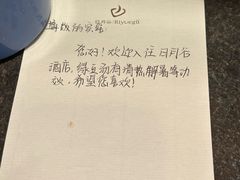 日月谷·Riyuegu
尊敬的宾客：
您好！欢迎入住日月谷
酒店，绿豆汤有清热解暑等功
效，希望您喜欢！